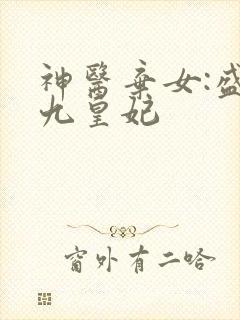 神醫棄女:盛
九皇妃
窗外有二哈